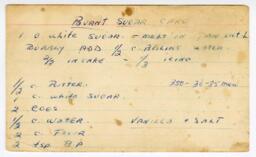 BURNT SUGAR CAKE
1 c white SUGAR - MELT IN PAN until
BURNLY ADD 1/2 c BOILING WATER.
2/3 IN CAKE - 1/3 ICING
1/2 c BUTTER. 350-30-35 min
1 c WHITE SUGAR
2 EGGS
1/2 c WATER. VANILLA + SALT
2 c FLOUR
2 tsp B.P